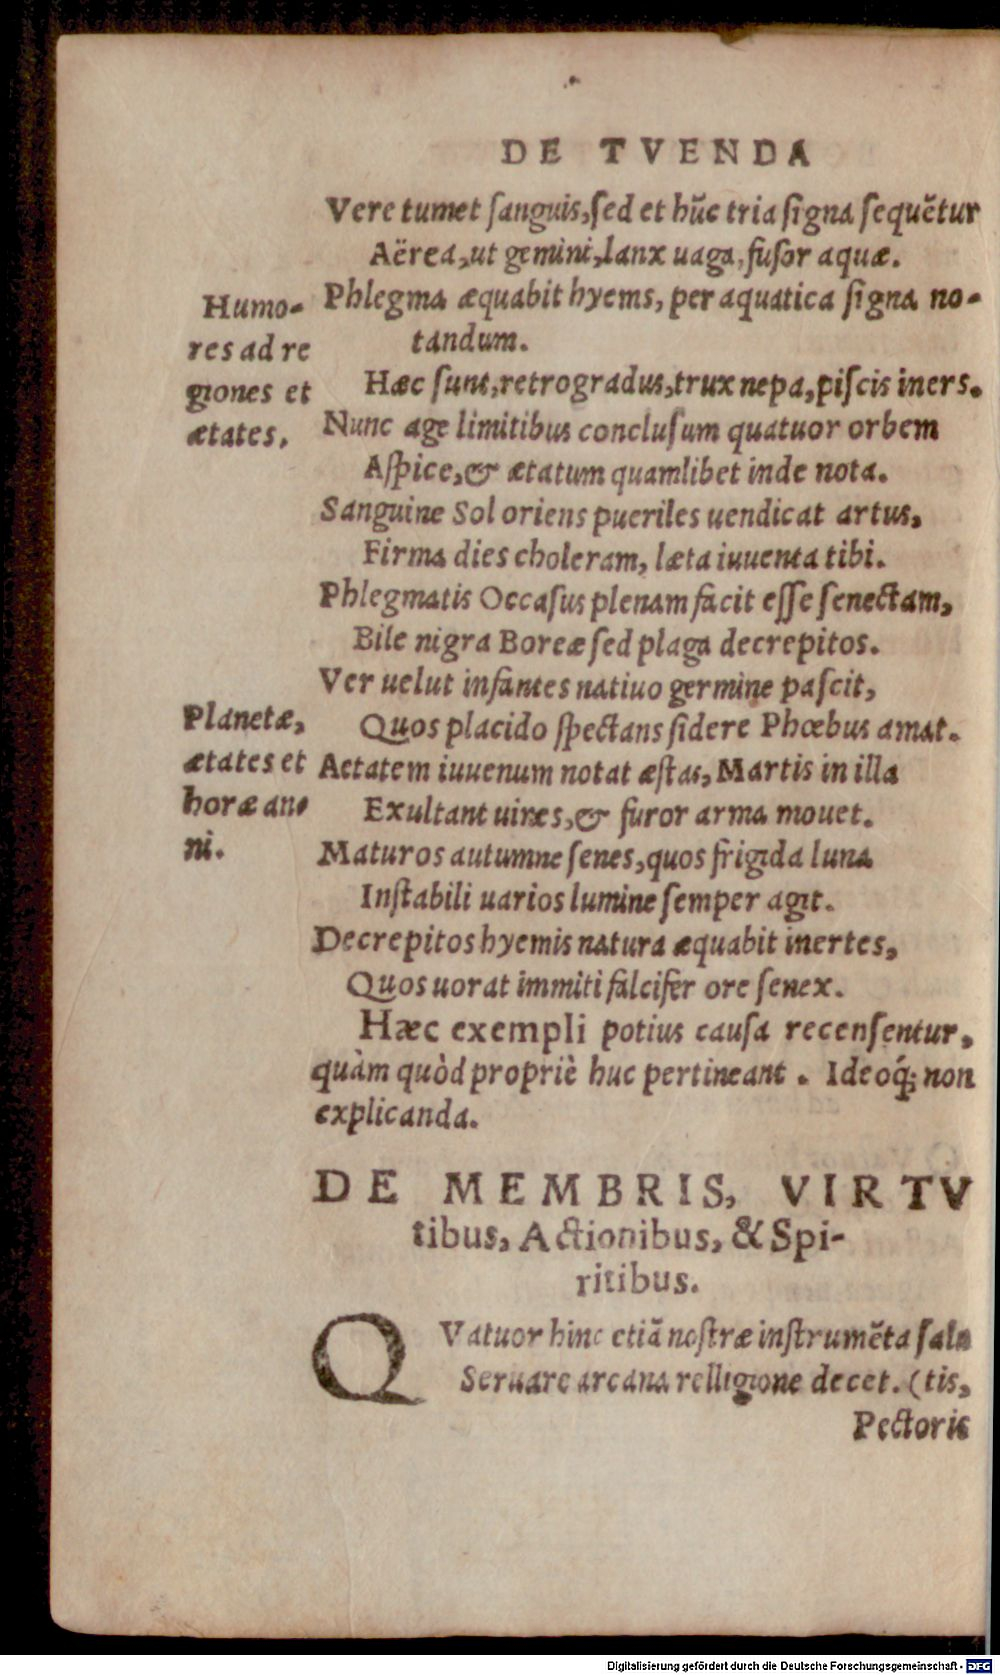 DE TVENDA
Vere tumet ſanguis, ſed et hūc tria ſigna ſequētur
Aërea, ut gemini, lanx uaga, fuſor aquæ.
Phlegma æquabit hyems, per aquatica ſigna no-
tandum.
Hæc ſunt, retrogradus, trux nepa, piſcis iners.
Nunc age limitibus concluſum quatuor orbem
Aſpice, & ætatum quamlibet inde nota.
Sanguine Sol oriens pueriles uendicat artus,
Firma dies choleram, læta iuuenta tibi.
Phlegmatis Occaſus plenam facit eſſe ſenectam,
Bile nigra Boreæ ſed plaga decrepitos.
Ver uelut infantes natiuo germine paſcit,
Quos placido ſpectans ſidere Phœbus amat.
Aetatem iuuenum notat æſtas, Martis in illa
Exultant uires, & furor arma mouet.
Maturos autumne ſenes, quos frigida luna
Inſtabili uarios lumine ſemper agit.
Decrepitos hyemis natura æquabit inertes,
Quos uorat immiti falcifer ore ſenex.
Hæc exempli potius cauſa recenſentur,
quàm quòd propriè huc pertineant. Ideoq́; non
explicanda.
Humo-
res ad re
giones et
ætates.
Planetæ,
ætates et
horæ an-
ni.
DE MEMBRIS, VIRTV
tibus, Actionibus, & Spi-
ritibus.
QVatuor hinc etiā noſtræ inſtrumēta ſalu
Seruare arcana relligione decet. (tis,
Pectoris
Digitalisierung gefördert durch die Deutsche Forschungsgemeinschaft - DFG